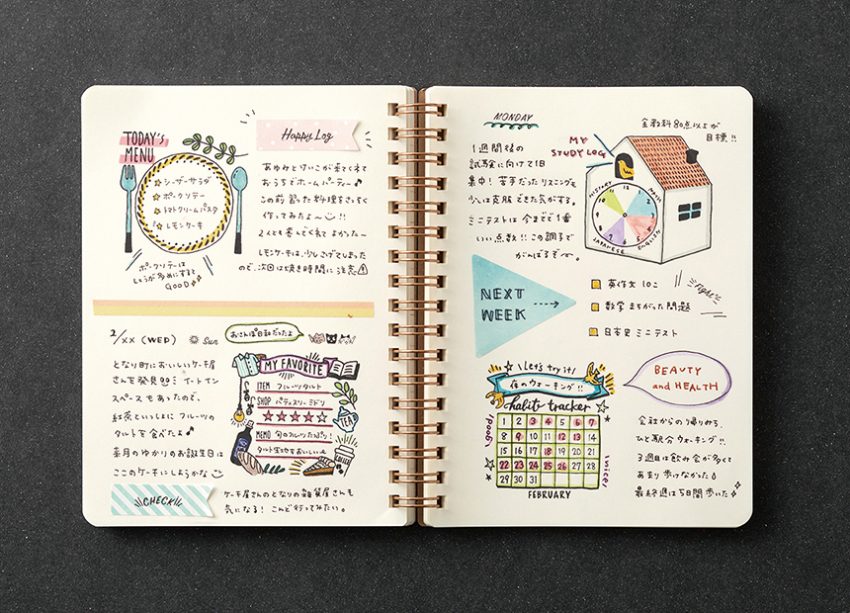 TODAY'S
MENU
シーザーサラダ
ポークソテー
トマトクリームパスタ
レモンケーキ
ポークソテーは
しょうが多めにすると
GOOD
Happy Log
あゆみとけいこが来てくれて
おうちでホームパーティー♪
この前習った料理をさっそく
作ってみたよ〜!!
2人とも喜んでくれてよかった〜
レモンケーキは、少しこげてしまった
ので、次回は焼き時間に注意
2/××(WED) Sun
おさんぽ日和だったよ
となり町においしいケーキ屋
さんを発見!! イートイン
スペースもあったので、
紅茶といっしょにフルーツの
タルトを食べたよ♪
来月のゆかりのお誕生日は
ここのケーキにしようかな
MY FAVORITE
ITEM フルーツタルト
SHOP パティスリーミドリ
★★★★☆
MEMO 旬のフルーツたっぷり!
タルト生地もおいしい
TEA
COFFEE
CHECK!
ケーキ屋さんのとなりの雑貨屋さんも
気になる! こんど行ってみたい。
MONDAY
1週間後の
試験に向けて1日
集中! 苦手だったリスニングも
少しは克服できた気がする。
ミニテストは今までで1番
いい点数!! この調子で
がんばるぞ〜。
MY
STUDY LOG
全教科80点以上が
目標!!
HISTORY
MATH
JAPANESE
ENGLISH
NEXT
WEEK
英作文 10こ
数学 まちがった問題
日本史 ミニテスト
fight!
Let's try it!
夜のウォーキング!!
habit tracker
good!
nice!
1 2 3 4 5 6 7
8 9 10 11 12 13 14
15 16 17 18 19 20 21
22 23 24 25 26 27 28
29 30 31
FEBRUARY
BEAUTY
and HEALTH
会社からの帰りみち、
ひと駅分ウォーキング!!
3週目は飲み会が多くて
あまり歩けなかった
最終週は5日間歩いた